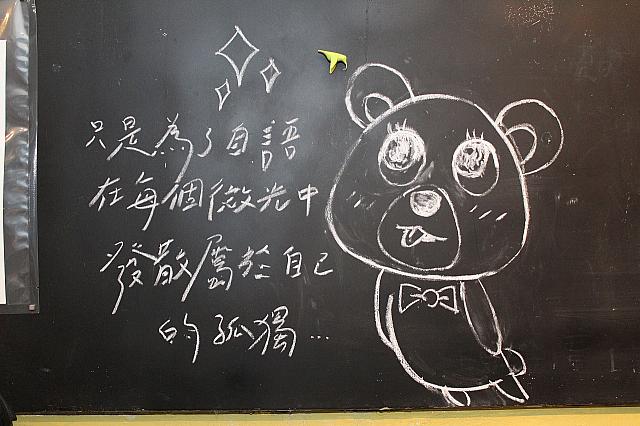 只是為了自語
在每個微光中
發散屬於自己
的孤獨...